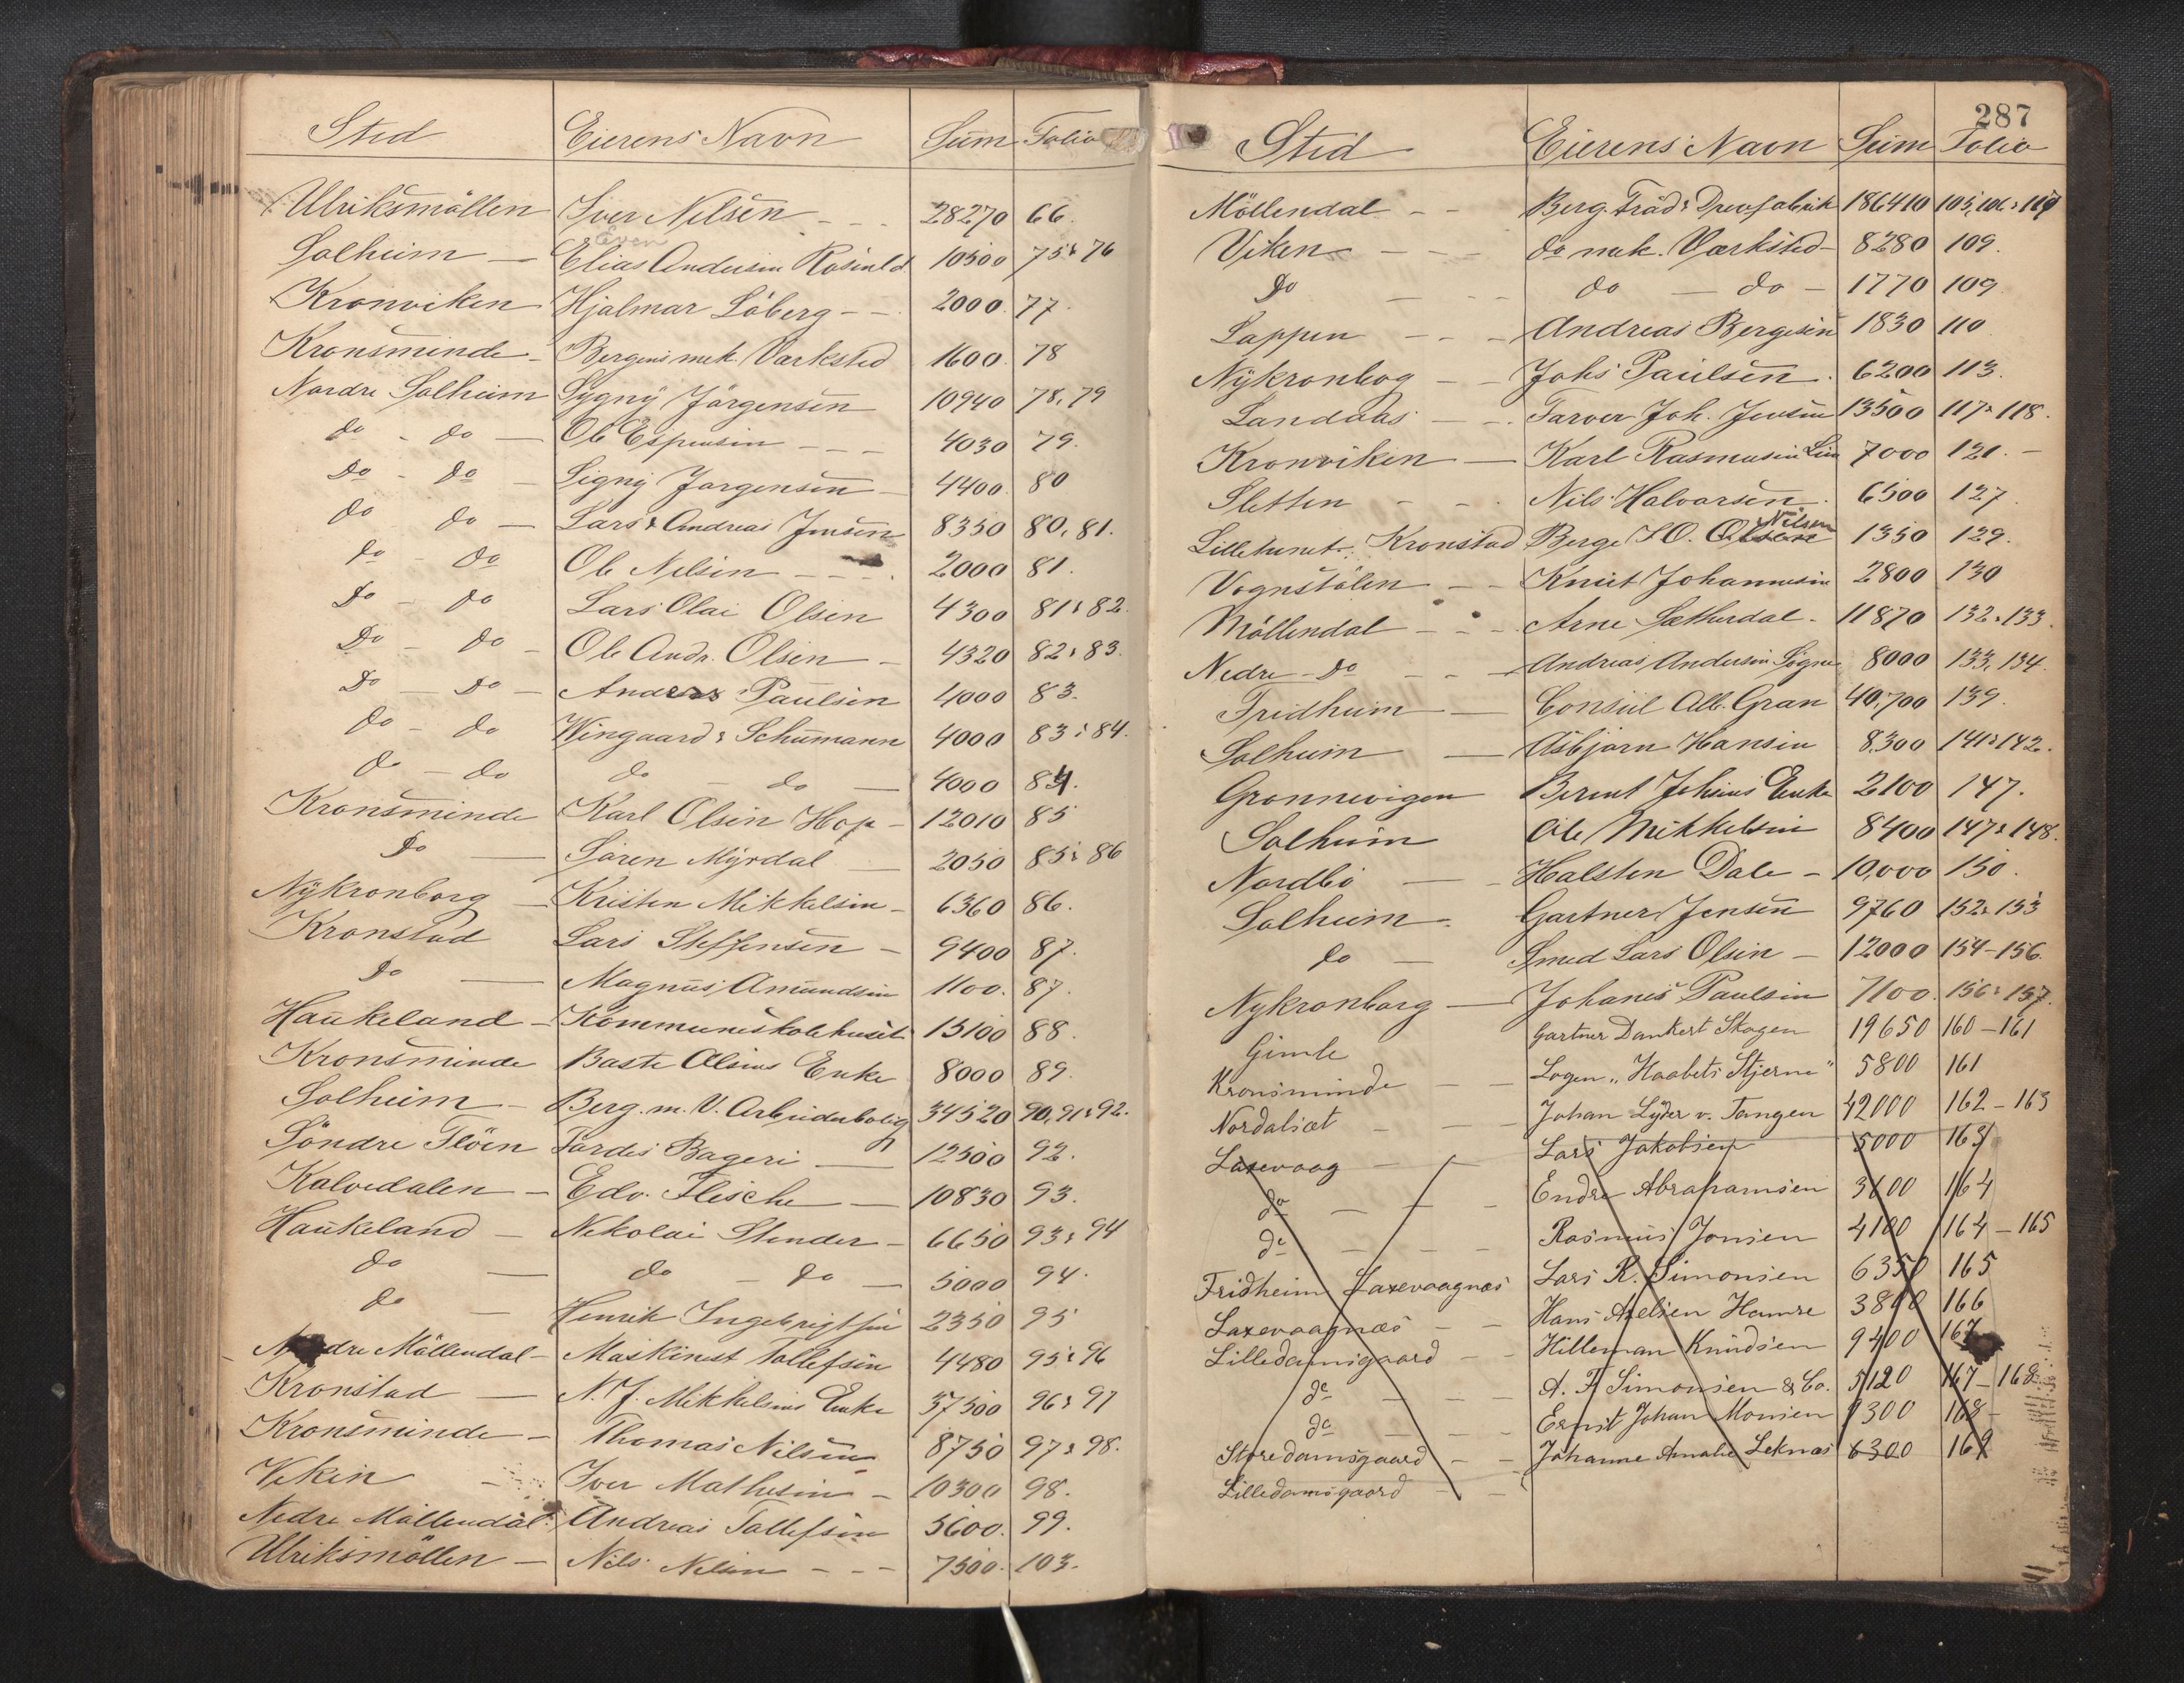 Sted Eierens Navn Sum Folio
Ulriksmöllen Iver Nilsen 28270 66.
Even
Solheim Elias Andersen 10500 75 & 76
Kronviken Hjalmar Löberg 2000 77.
Kronsminde Bergens mek. Værksted 1600 78
Nordre Solheim Sygny Jörgensen 10940 78, 79
do - do Ole Espensen 4030 79.
Do - do Signy Jorgensen 4400 80
do do Lars & Andreas Jensen 8350 80, 81.
do - do Ole Nilsen 2000 81.
Do - do Lars Olai Olsen 4300 81 & 82.
Do - do Ole Andr. Olsen 4320 82 & 83.
Do - Do Anders Paulsen 4000 83.
do - do Wingaard & Schumann 4000 83 & 84.
do - do do - do 4000 84.
Kronsminde Karl Olsen Hop 12010 85
Do Sören Myrdal 2050 85 & 86
Nykronborg Kristen Mikkelsen 6360 86.
Kronstad Lars Steffensen 9400 87.
Do Magnus Amundsen 1100. 87.
Haukeland Kommuneskolehuset 15100 88.
Kronsminde Baste Olsens Enke 8000 89.
Solheim Berg. m. V. Arbeiderbolig 34520 90, 91 & 92.
Söndre Flöen Tordis Bageri 12500 92.
Kalvedalen Edv. Flesche 10830 93.
Haukeland Nikolai Stender 6650 93 & 94
do do - do 5000 94.
do Henrik Ingebrigtsen 2350 95
Nedre Möllendal Maskinist Tollefsen 4480 95 & 96
Kronstad N. J. Mikkelsens Enke 37500 96 & 97
Kronsminde Thomas Nilsen 8750 97 & 98.
Viken Iver Mathesen 10300 98.
Nedre Möllendal Andreas Tollefsen 5600. 99.
Ulriksmöllen Nils Nilsen 7500. 103.
287
Sted Eierens Navn Sum Folio
Möllendal Berg. Traad & Drevfabrik 186410 105, 106 & 107
Viken do mek. Værksted 8280 109.
Do do - do 1770 109
Lappen Andreas Bergesen 1830 110
Nykronborg Johs Paulsen 6200 113.
Landaas Farver Joh. Jensen 13500 117 & 118.
Kronviken Karl Rasmusen Lien 7000 121.
Sletten Nils Halvorsen 6500 127
Nilsen
Lilletunet Kronstad Berge I O. Olsen 1350 129.
Vognstölen Knut Johannesen 2800 130
Möllendal Arne Sætherdal 11870 132 & 133.
Nedre - do Andreas Andersen 8000 133, 134.
Fridheim Consul Alb. Gran 40,700 139.
Solheim Asbjørn Hansen 8,300 141 & 142.
Gronnevigen Berent Johsens Enke 2100 147.
Solheim Ole Mikkelsen 8400 147 & 148.
Nordbö Halsten Dale 10,000 150.
Solheim Gartner Jensen 9760 152 & 153
do Smed Lars Olsen 12000 154-156.
Nykronborg Johanes Paulsen 7100. 156 & 157.
Gimle Gartner Dankert Skagen 19650 160-161
Kronsminde Logen „Haabets Stjerne" 5800 161
Nordalset Johan Lyder v. Tangen 42000 162-163
Laxevaag Lars Jakobsen 5000 163
do Endre Abrahamsen 3600 164
do Rasmus Jonsen 4100 164-165
Fridheim Laxevaagnæs Lars R. Simonsen 6350 165
Laxevaagnæs Hans Axelsen Hamre 3800 166
Lilledamsgaard Hilleman Knudsen 9400 167
do A. F. Simonsen & Co. 5120 167-168
do Ernst Johan Monsen 9300 168-
Storedamsgaard Johanne Amalie Leknæs 6300 169
Lilledamsgaard